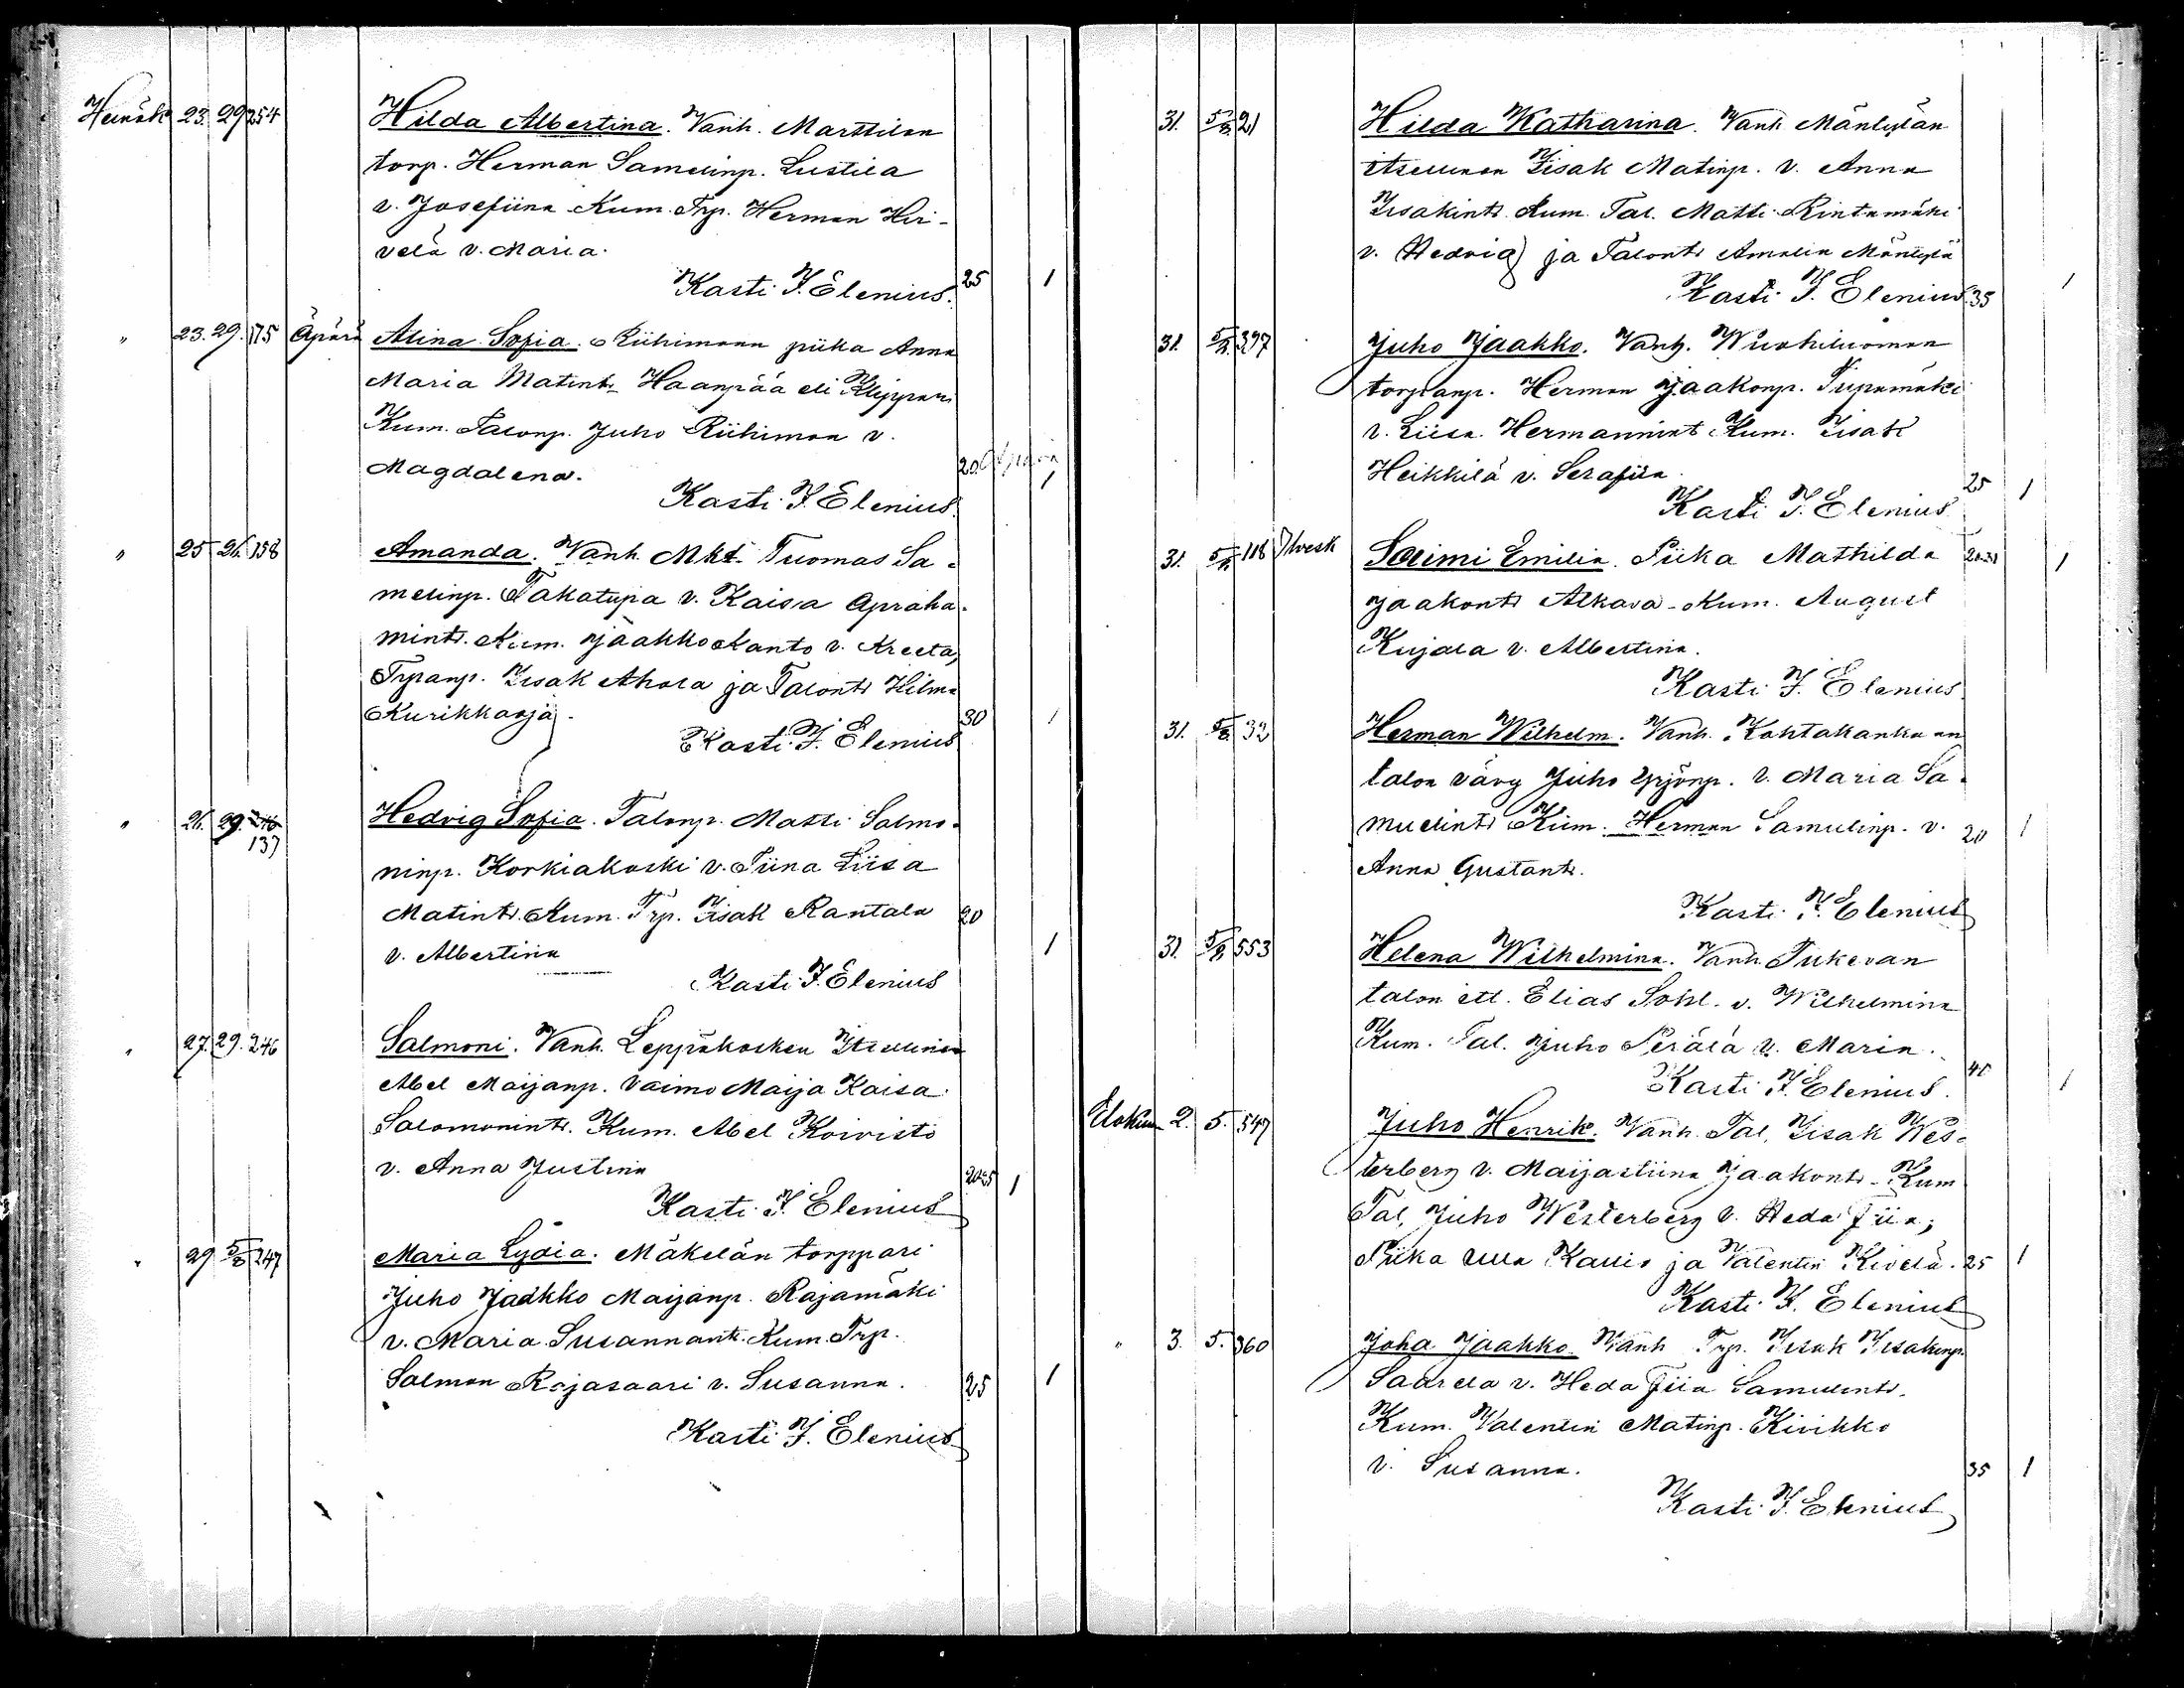 Heinäk 23. 29 254 Hilda Albertina. Vanh. Marttilan
torp. Herman Samelinp. Lustila
v. Josefiina Kum. Trp. Herman Hir-
velä v. Maria.
Kasti J. Elenius. 25 1
" 23. 29. 175 Äpärä Alina Sofia. Riihimaan piika Anna
Maria Matint. Haanpää eli Klippari
Kum. Talonp. Juho Riihimaa v.
Magdalena. 20
Kasti J. Elenius. 1
" 25 26. 158 Amanda. Vanh. Mkt. Tuomas Sa-
melinp. Takatupa v. Kaisa Apraha-
mint. Kum. Jaakko Kanto v. Kreeta,
Trpanp. Iisak Ahola ja Talont. Hilma
Kurikkaoja. 30 1
Kasti J. Elenius
" 26. 29. 246 Hedvig Sofia. Talonp. Matti Salmo-
137
ninp. Korkiakoski v. Tiina Liisa
Matint. Kum. Trp. Iisak Rantala 20
v. Albertina 1
Kasti J. Elenius
" 27. 29. 246 Salmoni. Vanh. Leppäkosken Itsellinen
Abel Maijanp. Vaimo Maija Kaisa
Salomonint. Kum. Abel Koivisto
v. Anna Justina 20-25 1
Kasti J. Elenius
" 29 5/8 247 Maria Lydia. Mäkelän torppari
Juho Jaakko Maijanp. Rajamäki
v. Maria Susannant. Kum. Trp.
Salmon Rajasaari v. Susanna. 25 1
Kasti J. Elenius
31. 5/8 21 Hilda Katharina. Vanh. Mäntylän
itsellinen Iisak Matinp. v. Anna
Iisakint. Kum. Tal. Matti Rintamäki
v. Hedvig ja Talont. Amalia Mäntylä
Kasti J. Elenius 35 1
31. 5/8 397 Juho Jaakko. Vanh.
torpanp. Herman Jaakonp. Tupamäki
v. Liisa Hermannint Kum. Iisak
Heikkilä v. Serafiia. 25 1
Kasti J. Elenius
31. 5/8 118 Saimi Emilia. Piika Mathilda 20-21 1
Jaakont. Alkava. Kum. August
Kujala v. Albertina.
Kasti J. Elenius
31. 5/8 32 Herman Wilhelm. Vanh. Kohtakankaan
talon vävy Juho Yrjönp. v. Maria Sa-
muelint. Kum. Herman Samulinp. v. 20 1
Anna Gustant.
Kasti J. Elenius
31. 5/8 553 Helena Wilhelmina. Vanh. Tukevan
talon itl. Elias Sohl. v. Wilhelmina
Kum. Tal. Juho Perälä v. Maria. 40 1
Kasti J. Elenius.
Elokuu 2. 5. 547 Juho Henrik. Vanh. Tal. Iisak Wes-
terberg v. Maijastiina Jaakont. Kum
Tal. Juho Westerberg v. Heda Fiia,
Piika Ulla Kallio ja Valentin Kivelä. 25 1
Kasti J. Elenius
" 3. 5. 360 Joha Jaakko Vanh Trp. Iisak Iisakinp.
Saarela v. Heda Fiia Samulint.
Kum. Valentin Matinp. Kivikko
v. Susanna. 35 1
Kasti J. Elenius